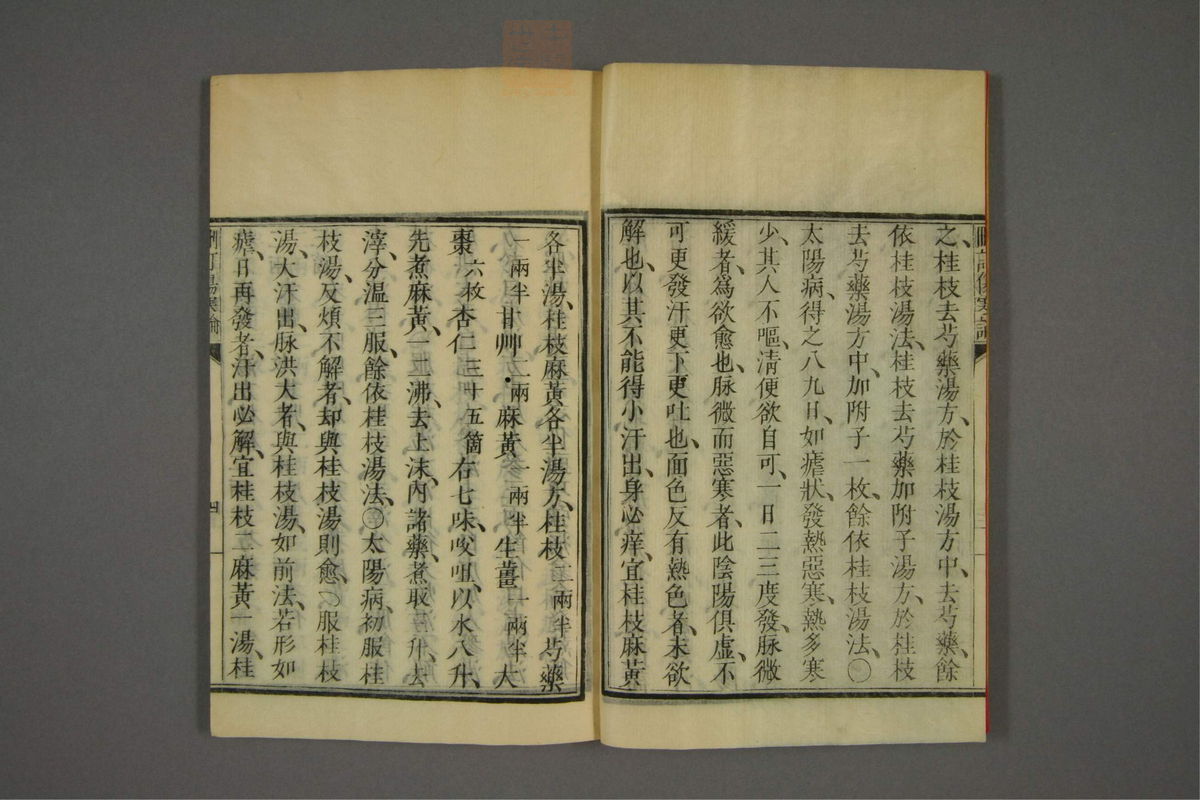 之、桂枝去芍藥湯方、於桂枝湯方中、去芍藥、餘
依桂枝湯法、桂枝去芍藥加附子湯方、於桂枝
去芍藥湯方中、加附子一枚、餘依桂枝湯法、〇
太陽病、得之八九日、如瘧狀、發熱惡寒、熱多寒
少、其人不嘔、淸便欲自可、一日二三度發、脉微
緩者、爲欲愈也、脉微而惡寒者、此陰陽俱虛、不
可更發汗更下更吐也、面色反有熱色者、未欲
解也、以其不能得小汗出、身必痒、宜桂枝麻黃
各半湯、桂枝麻黃各半湯方、桂枝 一兩半 芍藥
一兩半 甘艸 一兩 麻黃 一兩半 生薑 一兩半 大
棗 六枚 杏仁 三十五箇 右七味、㕮咀、以水八升、
先煮麻黃一二沸、去上沫、內諸藥、煮取 升、去
滓、分溫三服、餘依桂枝湯法、〇太陽病、初服桂
枝湯、反煩不解者、却與桂枝湯則愈、〇服桂枝
湯、大汗出、脉洪大者、與桂枝湯、如前法、若形如
瘧、日再發者、汗出必解、宜桂枝二麻黃一湯、桂
傷寒論
四